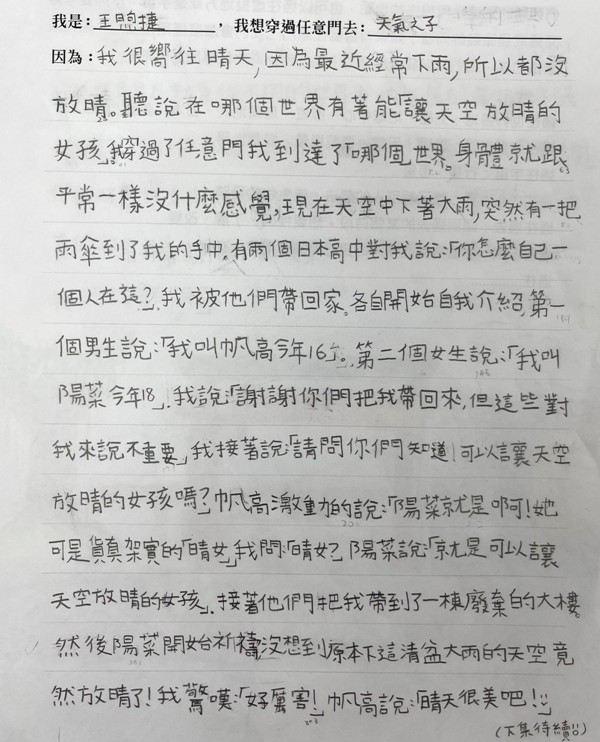 我是：王煦捷，我想穿過任意門去：天氣之子
因為：我很嚮往晴天，因為最近經常下雨，所以都沒
放晴。聽說在哪個世界有著能讓天空放晴的
女孩」我穿過了任意門我到達了「哪個」世界。身體就跟
平常一樣沒什麼感覺，現在天空中下著大雨，突然有一把
雨傘到了我的手中。有兩個日本高中對我說：「你怎麼自己一
個人在這？」我被他們帶回家。各自開始自我介紹，第一
個男生說：「我叫帆高今年16」。第二個女生說：「我叫
陽菜今年18」。我說：「謝謝你們把我帶回來，但這些對
我來說不重要」我接著說：「請問你們知道！可以讓天空
放晴的女孩嗎？帆高激動的說：「陽菜就是啊！她
可是貨真架實的「晴女」我問：「晴女？陽菜說：「就是可以讓
天空放晴的女孩」。接著他們把我帶到了一棟廢棄的大樓。
然後陽菜開始祈禱沒想到原本下這清盆大雨的天空竟
然放晴了！我驚嘆：「好厲害！」帆高說：「晴天很美吧！
(下集待續!!)